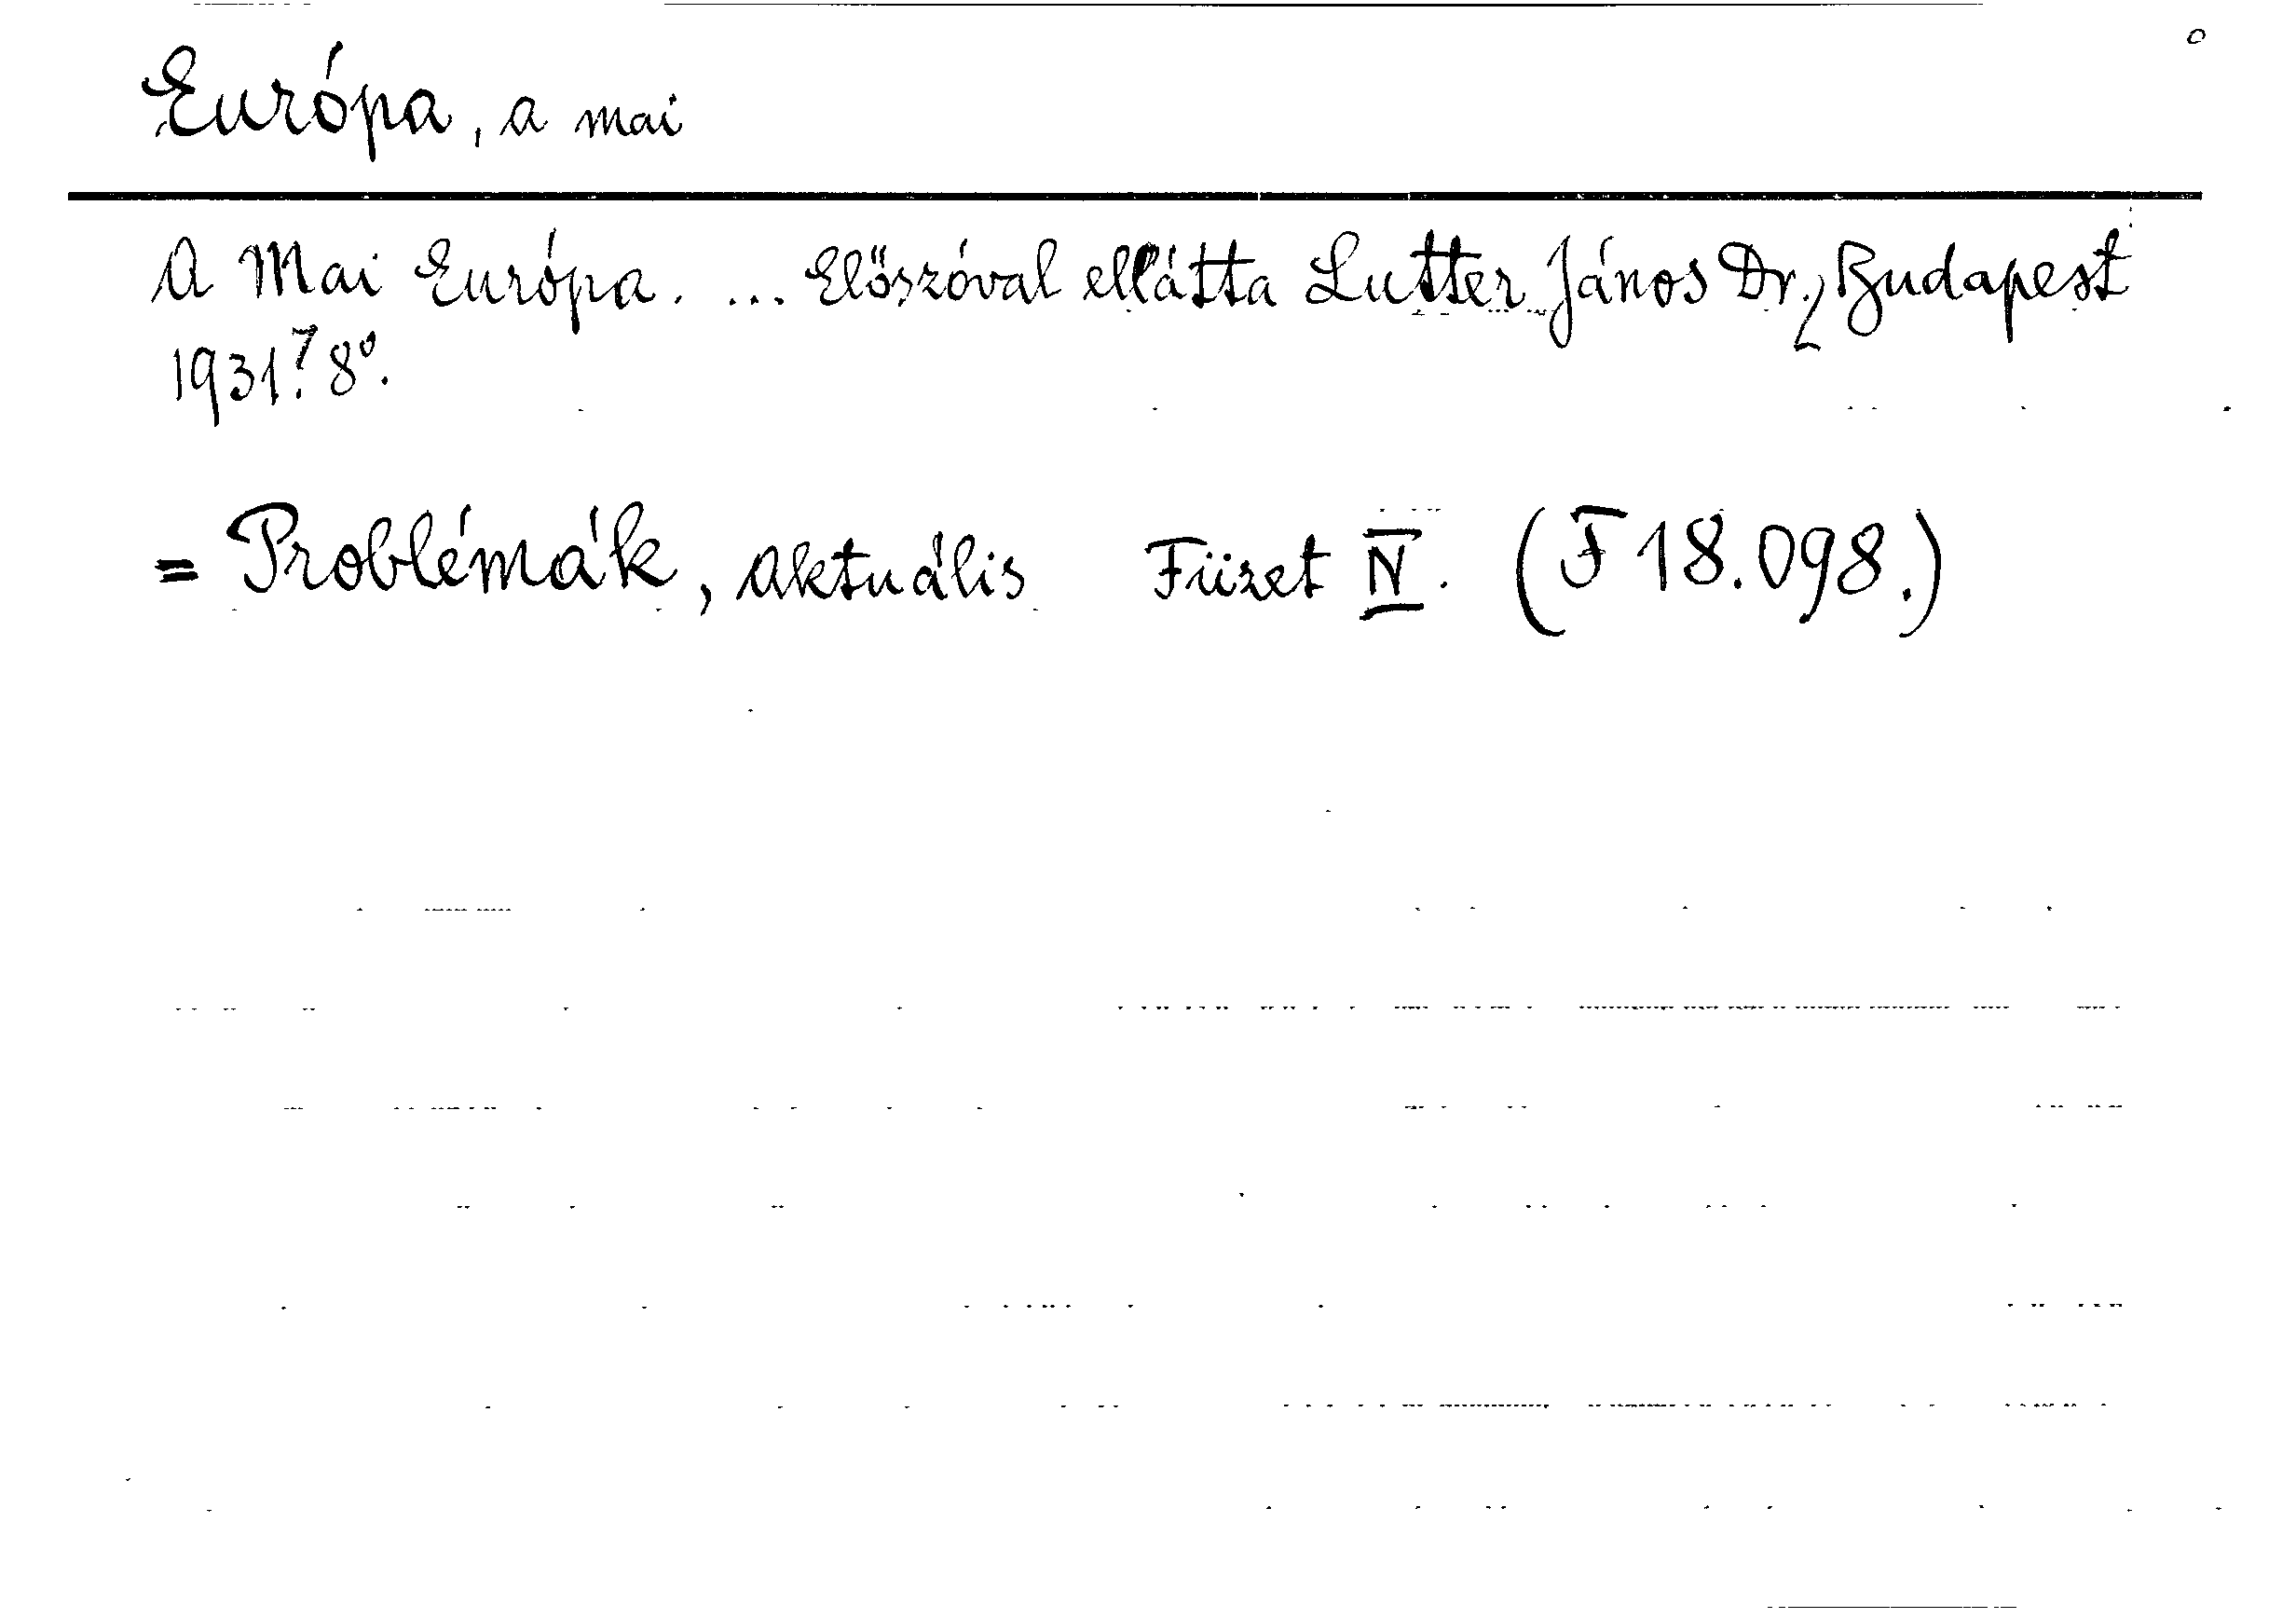 Európa, a mai
A Mai Európa. ... Előszóval ellátta Lutter János Dr., Budapest
1931? 8º.
= Problémák, aktuális Füzet IV. (F 18.098.)